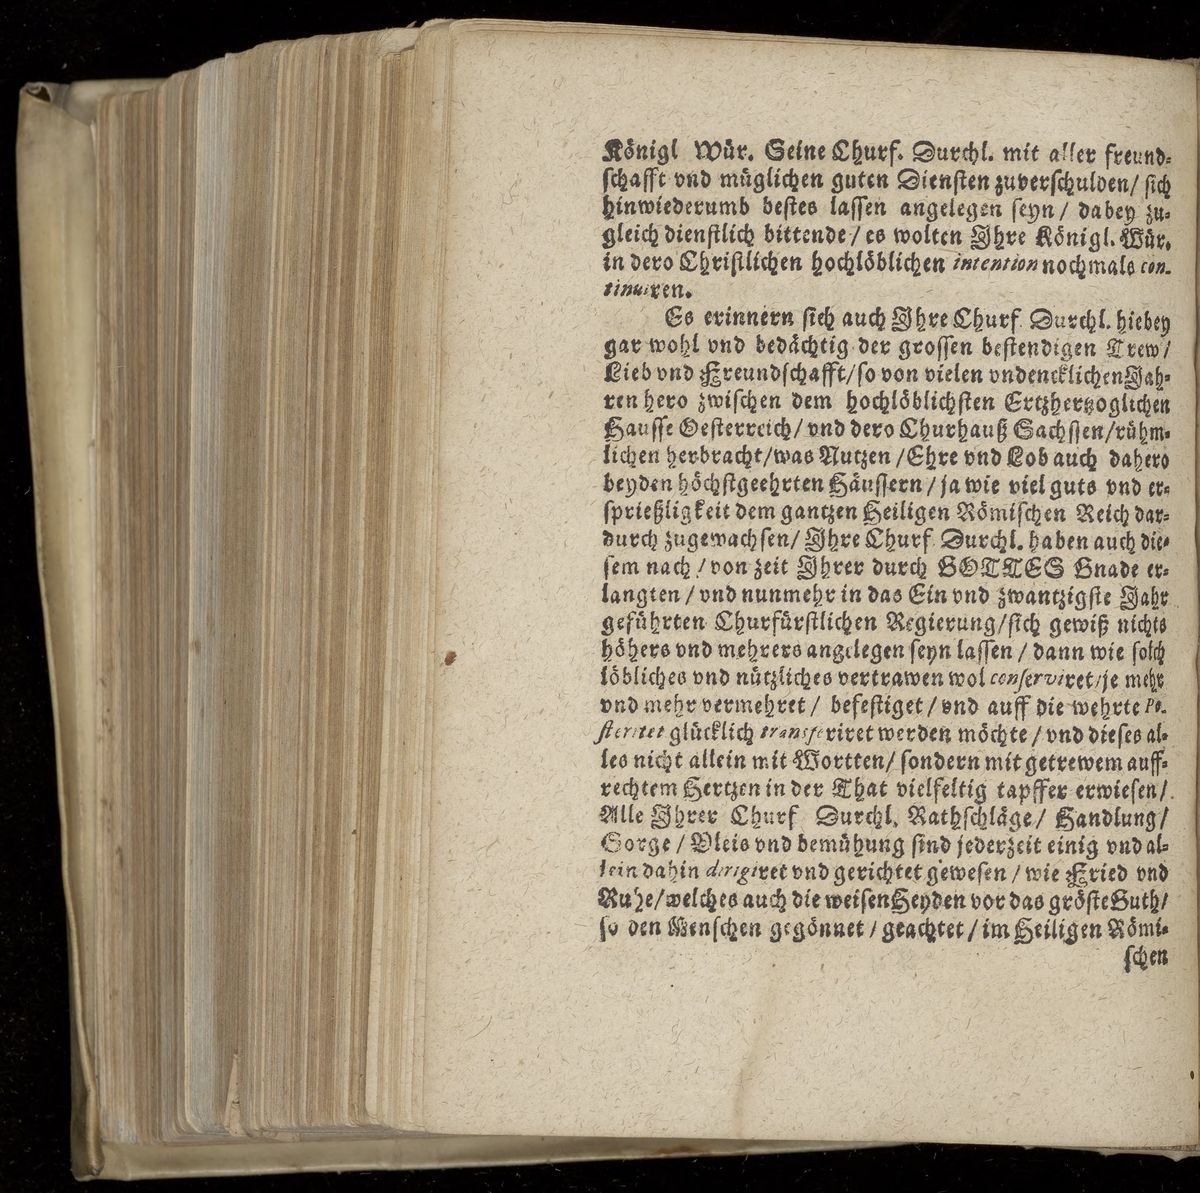 Königl Wür. Seine Churf. Durchl. mit aller freund-
schafft vnd müglichen guten Diensten zuverschulden/ sich
hinwiederumb bestes lassen angelegen seyn/ dabey zu-
gleich dienstlich bittende/ es wolten Ihre Königl. Wür.
in dero Christlichen hochlöblichen intention nochmals con-
tinuiren.
Es erinnern sich auch Ihre Churf Durchl. hiebey
gar wohl vnd bedächtig der grossen bestendigen Trew/
Lieb vnd Freundschafft/ so von vielen vndencklichen Jah-
ren hero zwischen dem hochlöblichsten Ertzhertzoglichen
Hausse Oesterreich/ vnd dero Churhauß Sachssen/ rühm-
lichen herbracht/ was Nutzen/ Ehre vnd Lob auch dahero
beyden höchstgeehrten Häussern/ ja wie viel guts vnd er-
sprießligkeit dem gantzen Heiligen Römischen Reich dar-
durch zugewachsen/ Ihre Churf Durchl. haben auch die-
sem nach/ von zeit Ihrer durch GOTTES Gnade er-
langten/ vnd nunmehr in das Ein vnd zwantzigste Jahr
geführten Churfürstlichen Regierung/ sich gewiß nichts
höhers vnd mehrers angelegen seyn lassen/ dann wie solch
löbliches vnd nützliches vertrawen wol conserviret/ je mehr
vnd mehr vermehret/ befestiget/ vnd auff die wehrte Po-
steritet glücklich transferiret werden möchte/ vnd dieses al-
les nicht allein mit Wortten/ sondern mit getrewem auff-
rechtem Hertzen in der That vielfeltig tapffer erwiesen/
Alle Ihrer Churf Durchl. Rathschläge/ Handlung/
Sorge/ Vleis vnd bemühung sind jederzeit einig vnd al-
lein dahin dirigiret vnd gerichtet gewesen/ wie Fried vnd
Ruhe/ welches auch die weisen Heyden vor das gröste Guth/
so den Menschen gegönnet/ geachtet/ im Heiligen Römi-
schen